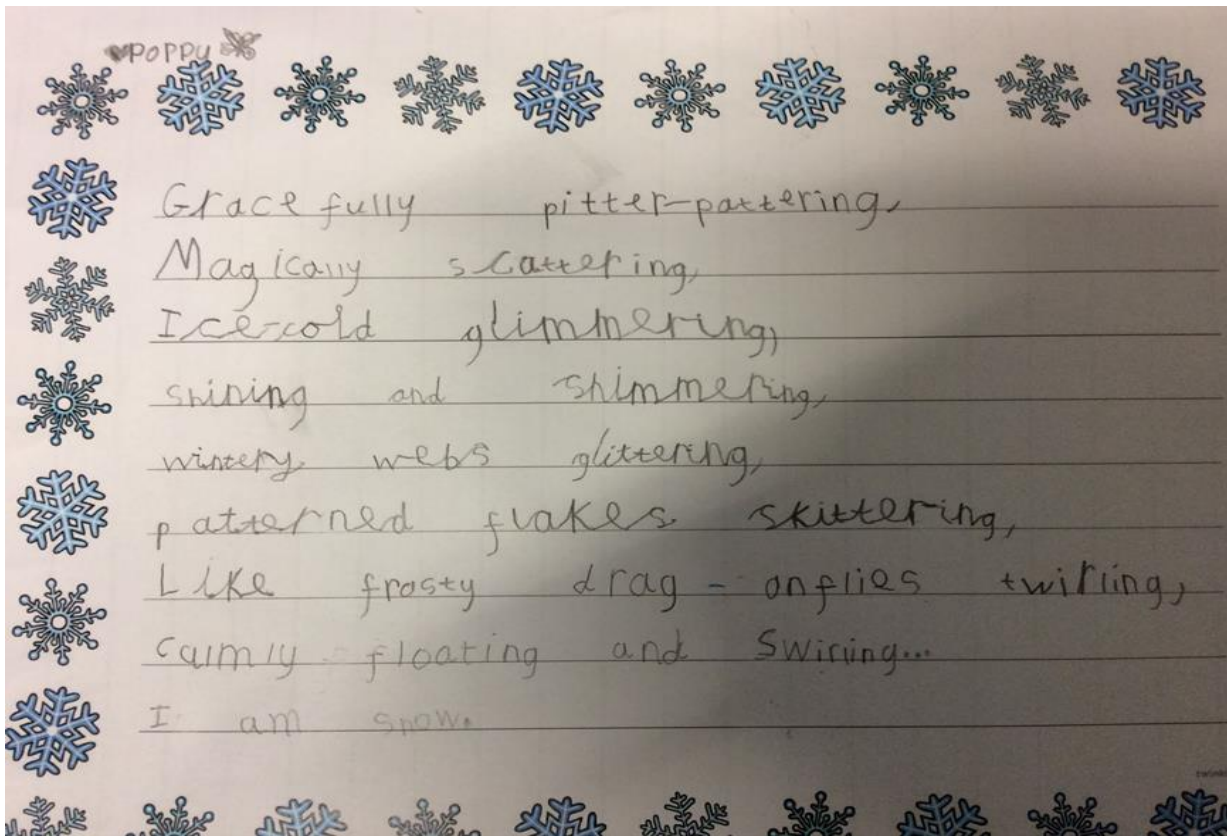 POPPY
Gracefully pitter-pattering,
Magically scattering,
Ice-cold glimmering,
shining and shimmering,
wintery webs glittering,
patterned flakes skittering,
Like frosty drag-onflies twirling,
calmly floating and swirling...
I am snow.